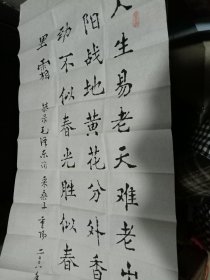 人生易老天难老
阳战地黄花分外香
劲不似春光胜似春
里霜
录毛泽东词采桑子重阳